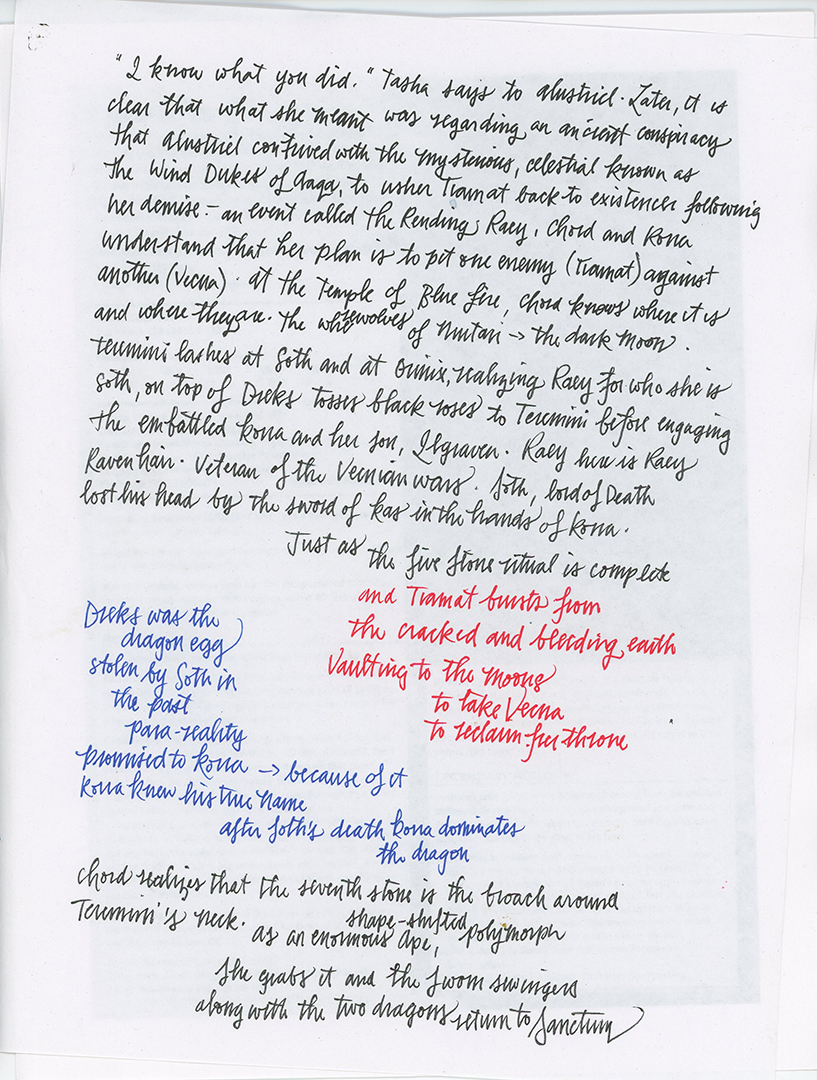 "I know what you did." Tasha says to Alustriel. Later, it is
clear that what she meant was regarding an ancient conspiracy
that Alustriel contrived with the mysterious, celestial known as
the Wind Dukes of Aaqa, to usher Tiamat back to existence following
her demise — an event called the Rending. Raey, Chord and Kona
understand that her plan is to pit one enemy (Tiamat) against
another (Vecna). At the Temple of Blue fire, Chord knows where it is
and where they are. The werewolves of Nuitari → the dark moon.
Teremini lashes at Soth and at, realizing Raey for who she is
Soth, on top of Dreks tosses black roses to Teremini before engaging
the embattled Kona and her son, Ilgraven. Raey here is Raey
Ravenhair. Veteran of the Vecnian wars. Soth, lord of Death
lost his head by the sword of Kas in the hands of Kona.
Just as the five stone ritual is complete
and Tiamat bursts from
the cracked and bleeding earth
Vaulting to the moons
to take Vecna
to reclaim her throne
Dreks was the
dragon egg
stolen by Soth in
the past
para-reality
promised to Kona → because of it
Kona knew his true name
after Soth's death Kona dominates
the dragon
Chord realizes that the seventh stone is the broach around
Teremini's neck.
shape-shifted
as an enormous Ape, polymorph
She grabs it and the
along with the two dragons return to Sanctum